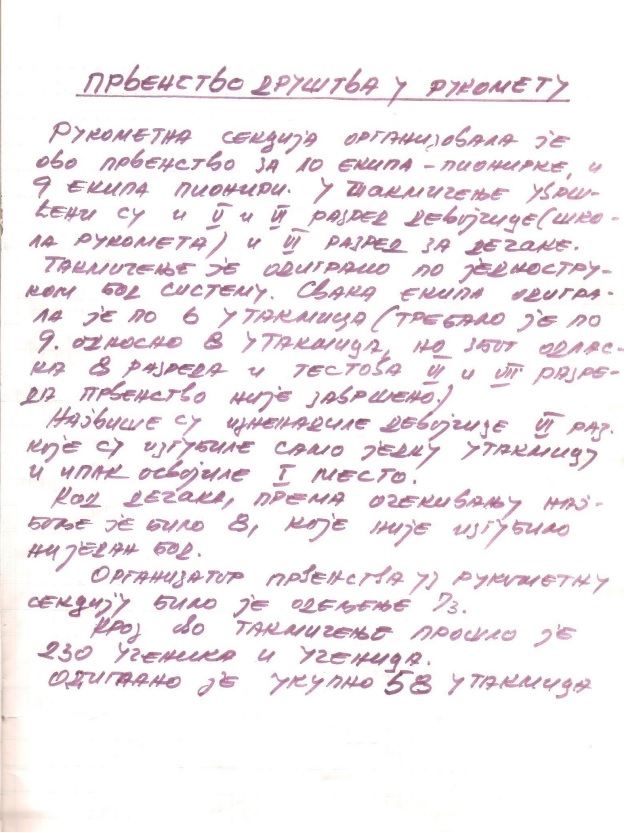 ПРВЕНСТВО ДРУШТВА У РУКОМЕТУ
РУКОМЕТНА СЕКЦИЈА ОРГАНИЗОВАЛА ЈЕ
ОВО ПРВЕНСТВО ЗА 10 ЕКИПА - ПИОНИРКЕ, И
9 ЕКИПА ПИОНИРИ. У ТАКМИЧЕЊЕ УВРШ-
ЋЕНИ СУ И V И VI РАЗРЕД ДЕВОЈЧИЦЕ (ШКО-
ЛА РУКОМЕТА) И VI РАЗРЕД ЗА ДЕЧАКЕ.
ТАКМИЧЕЊЕ ЈЕ ОДИГРАНО ПО ЈЕДНОСТРУ-
КОМ БОД СИСТЕМУ. СВАКА ЕКИПА ОДИГРА-
ЛА ЈЕ ПО 6 УТАКМИЦА (ТРЕБАЛО ЈЕ ПО
9. ОДНОСНО 8 УТАКМИЦА, НО ЗБОГ ОДЛАС-
КА 8 РАЗРЕДА И ТЕСТОВА VI И VII РАЗРЕ-
ДА ПРВЕНСТВО НИЈЕ ЗАВРШЕНО.)
НАЈВИШЕ СУ ИЗНЕНАДИЛЕ ДЕВОЈЧИЦЕ VI РАЗ.
КОЈЕ СУ ИЗГУБИЛЕ САМО ЈЕДНУ УТАКМИЦУ
И ИПАК ОСВОЈИЛЕ I МЕСТО.
КОД ДЕЧАКА, ПРЕМА ОЧЕКИВАЊУ НАЈ-
БОЉЕ ЈЕ БИЛО 8, КОЈЕ НИЈЕ ИЗГУБИЛО
НИ ЈЕДАН БОД.
ОРГАНИЗАТОР ПРВЕНСТВА УЗ РУКОМЕТНУ
СЕКЦИЈУ БИЛО ЈЕ ОДЕЉЕЊЕ 7/3.
КРОЗ ОВО ТАКМИЧЕЊЕ ПРОШЛО ЈЕ
230 УЧЕНИКА И УЧЕНИЦА.
ОДИГРАНО ЈЕ УКУПНО 58 УТАКМИЦА